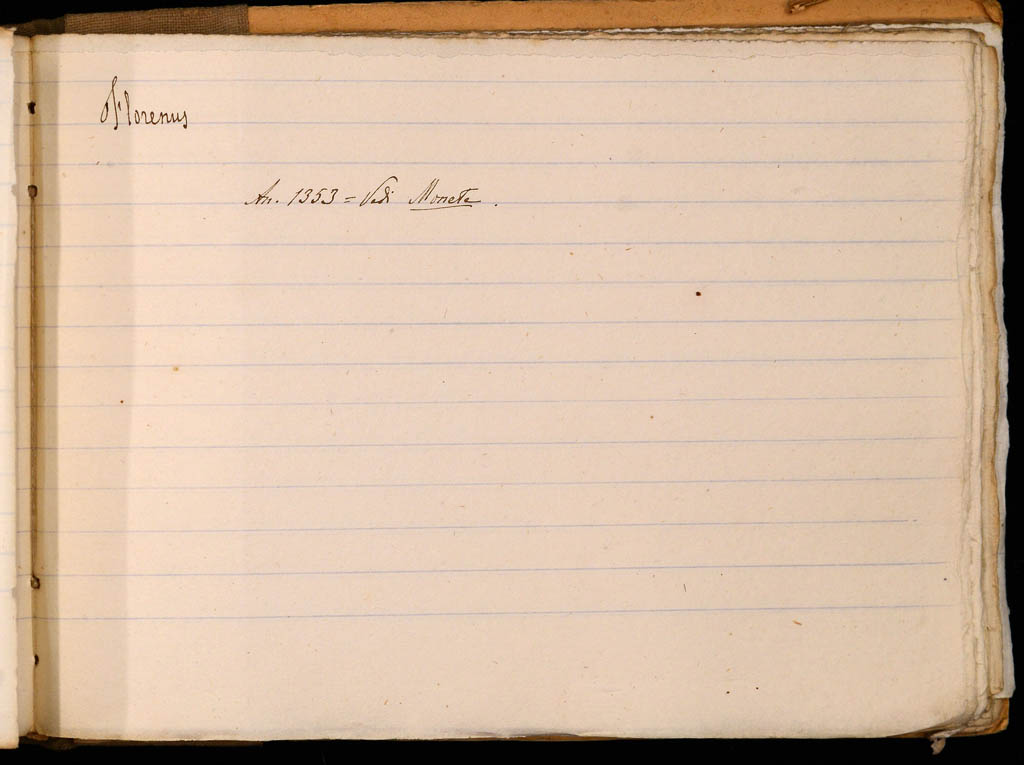 Florenus
An. 1353 = Vedi Monete.